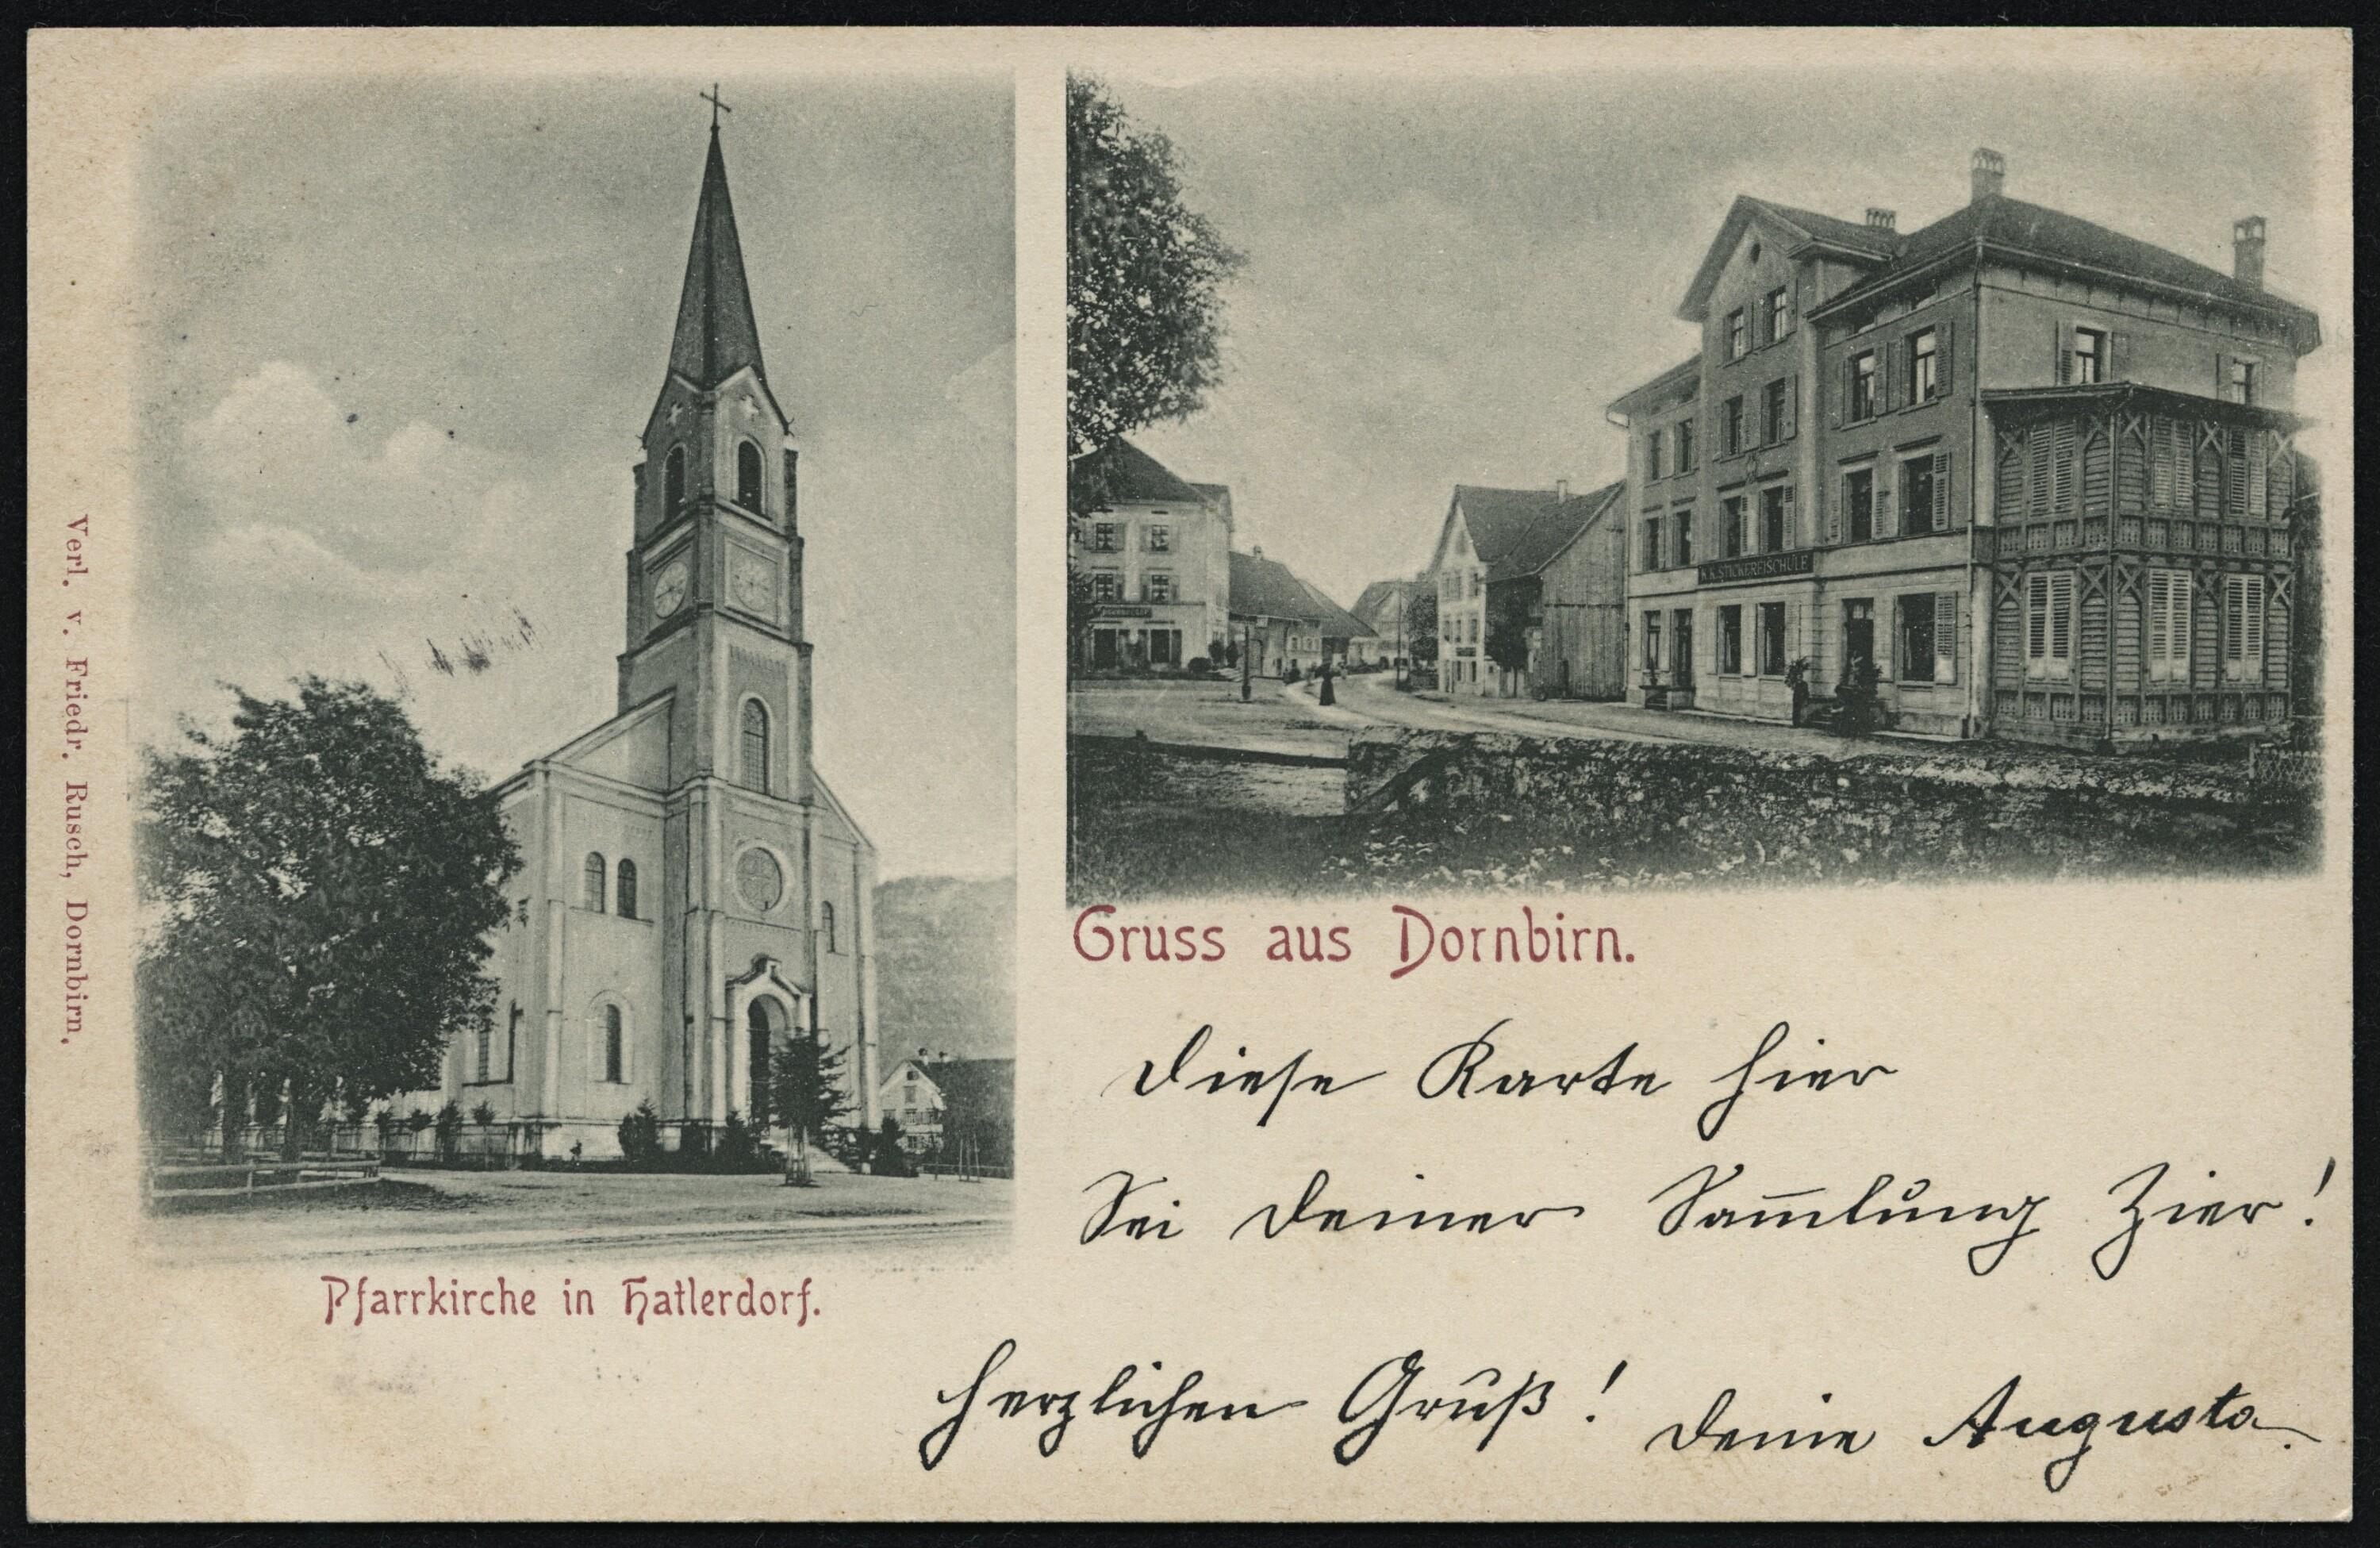 Verl. v. Friedr. Rusch, Dornbirn.
K.K. STICKEREISCHULE
Gruss aus Dornbirn.
Diese Karte hier
Sei Deiner Sam̅lung Zier!
Pfarrkirche in Hatlerdorf.
Herzlichen Gruß! Deine Augusta.